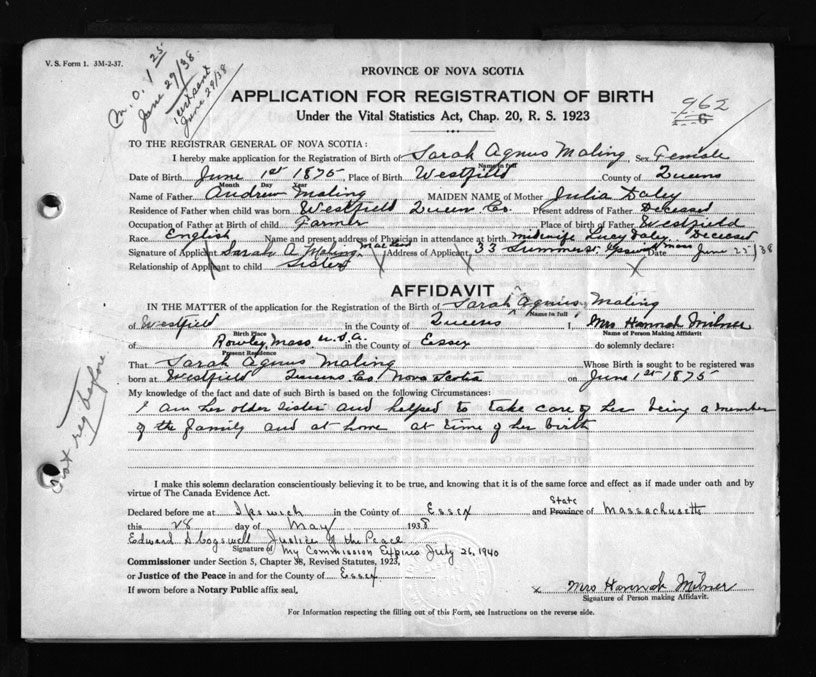 V. S. Form 1. 3M-2-37.
M.O. 1 25
June 29/38
cert sent
June 29/38
PROVINCE OF NOVA SCOTIA
APPLICATION FOR REGISTRATION OF BIRTH
Under the Vital Statistics Act, Chap. 20, R. S. 1923
962
TO THE REGISTRAR GENERAL OF NOVA SCOTIA:
I hereby make application for the Registration of Birth of Sarah Agnus Maling, Sex Female
Name in full
Date of Birth June 1st 1875, Place of Birth Westfield County of Queens
Month Day Year
Name of Father Andrew Maling MAIDEN NAME of Mother Julia Daley
Residence of Father when child was born Westfield Queens Co. Present address of Father Deceased
Occupation of Father at Birth of child Farmer Place of birth of Father Westfield
Race English Name and present address of Physician in attendance at birth midwife Lucy Daley Deceased
Signature of Applicant Sarah A Maling Address of Applicant 33 Summer St. Ipswich Mass Date June 25/38
Relationship of Applicant to child Sister
AFFIDAVIT
IN THE MATTER of the application for the Registration of Birth of Sarah Agnus Maling
Name in full
of Westfield in the County of Queens I, Mrs Hannah Milner
Birth Place Name of Person Making Affidavit
of Rowley Mass U.S.A. in the County of Essex do solemnly declare:
Present Residence
That Sarah Agnus Maling Whose Birth is sought to be registered was
born at Westfield Queens Co. Nova Scotia on June 1st 1875
My knowledge of the fact and date of such Birth is based on the following Circumstances:
I am her older sister and helped to take care of her being a member
of the family and at home at time of her birth
not reg before
I make this solemn declaration conscientiously believing it to be true, and knowing that it is of the same force and effect as if made under oath and by
virtue of The Canada Evidence Act.
State
Declared before me at Ipswich in the County of Essex and Province of Massachusetts
this 28 day of May 1938
Edward A Cogswell Justice of the Peace
Signature of My Commission Expires July 26, 1940
Commissioner under Section 5, Chapter 38, Revised Statutes, 1923,
or Justice of the Peace in and for the County of Essex
If sworn before a Notary Public affix seal,
x Mrs Hannah Milner
Signature of Person making Affidavit.
For Information respecting the filling out of this Form, see Instructions on the reverse side.